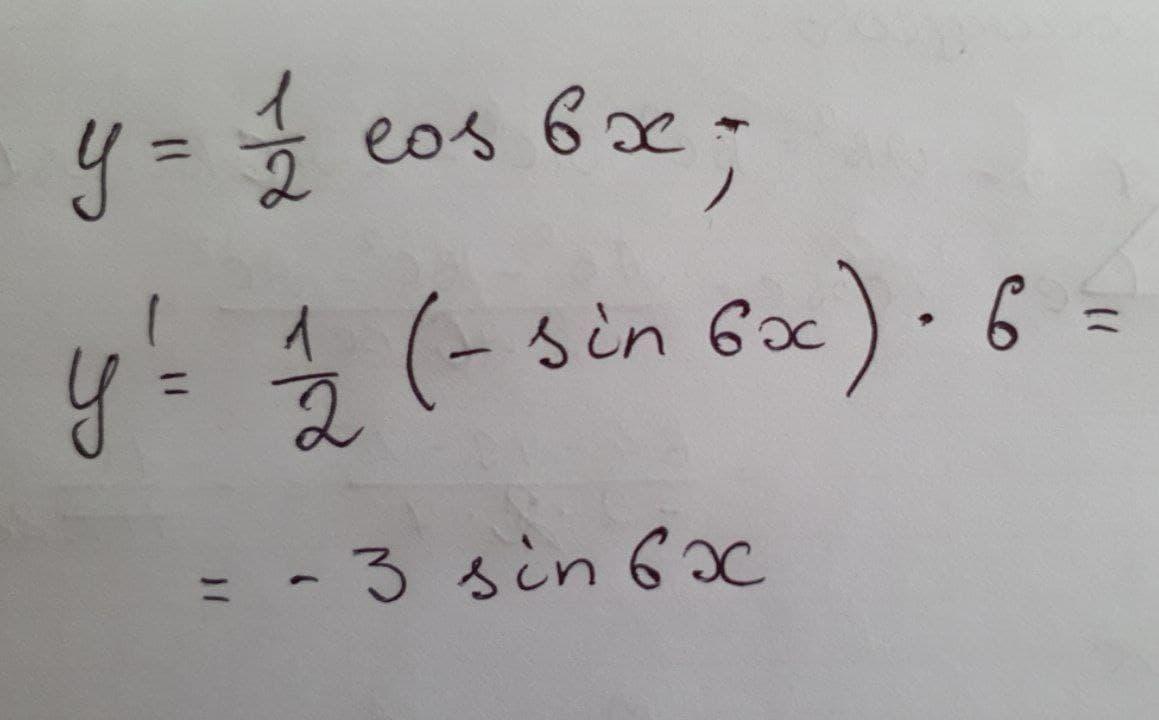 y = 1/2 cos 6x;
y' = 1/2 (- sin 6x) · 6 =
= - 3 sin 6x